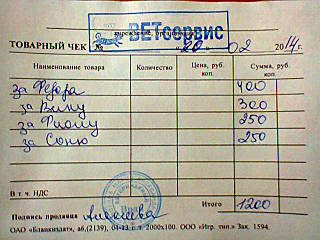 ВЕТсервис
учреждение, организация
ТОВАРНЫЙ ЧЕК № "20" 02 2014 г.
Наименование товара Количество Цена, руб. коп. Сумма, руб. коп.
за Федора 400
за Вину 300
за Фиону 250
за Соню 250
В т. ч. НДС
Итого 1200
Подпись продавца
ОАО «Бланкиздат», а6,(2139), 04-13 г. т 2000х100. ООО «Игр. тип.» Зак. 1594.